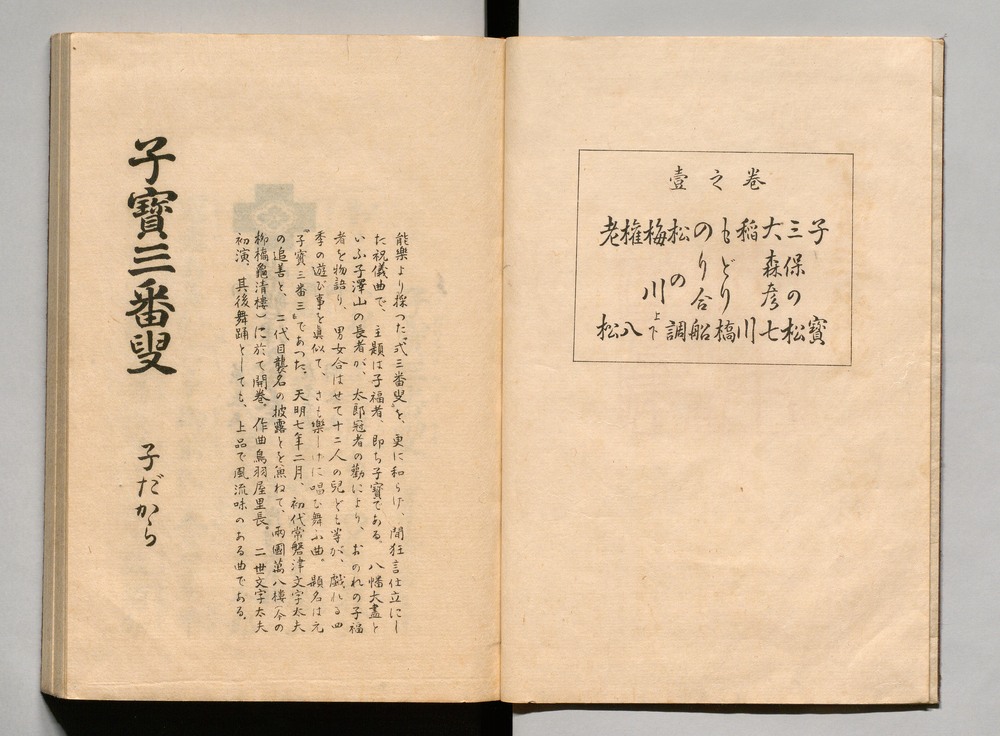 壹之卷
子寶
三保の松
大森彦七
稲川
もどり橋
のり合船
松の調
梅川上下
権八
老松
能樂より採つた『式三番叟』を、更に和らげ、間狂言仕立にし
た祝儀曲で、主題は子福者、即ち子寶である。八幡大盡と
いふ子澤山の長者が、太郎冠者の勸により、おのれの子福
者を物語り、男女合はせて十二人の兒ども等が、戯れる四
季の遊び事を眞似て、さも樂しげに唱ひ舞ふ曲。題名は元
『子寶三番三』であつた。天明七年二月、初代常磐津文字太夫
の追善と、二代目襲名の披露とを兼ねて、兩國萬八樓(今の
柳橋龜清樓)に於て開卷。作曲鳥羽屋里長。二世文字太夫
初演、其後舞踊としても、上品で風流味のある曲である。
子寶三番叟 子だから